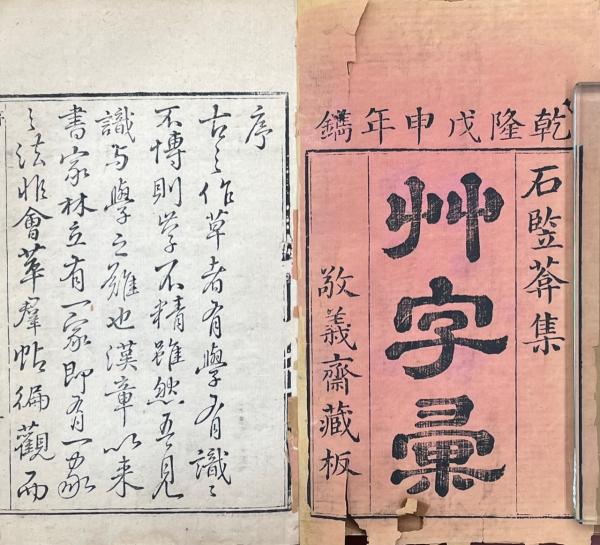 乾隆戊申年鐫
石竪葊集
艸字彙
敬義齋藏板
序
古之作草者有學有識〻
不愽則学不精雖然吾見
識与學之難也漢章以来
書家林立有一家即有一家
之法非會萃羣帖徧觀而